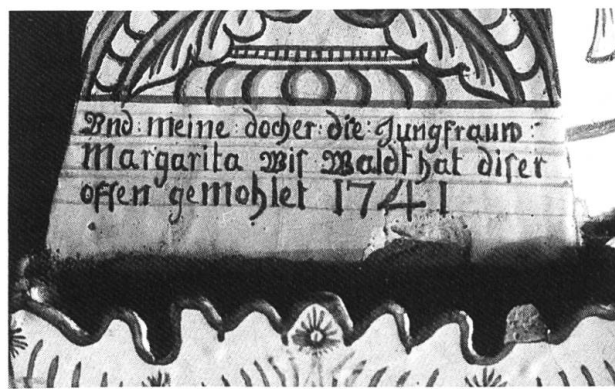 Vnd: meine: docher: die: Jungfrauw:
Margarita Wis Waldt hat diser
offen gemohlet 1741